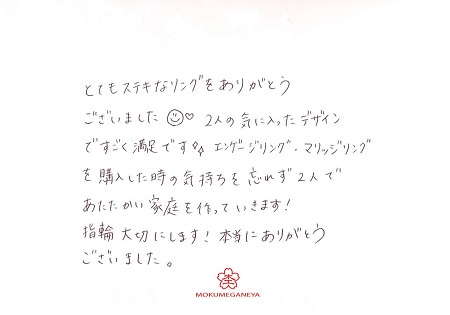 とてもステキなリングをありがとう
ございました☺♡ 2人の気に入ったデザイン
ですごく満足です✨ エンゲージリング・マリッジリング
を購入した時の気持ちを忘れず2人で
あたたかい家庭を作っていきます!
指輪大切にします!本当にありがとう
ございました。
MOKUMEGANEYA